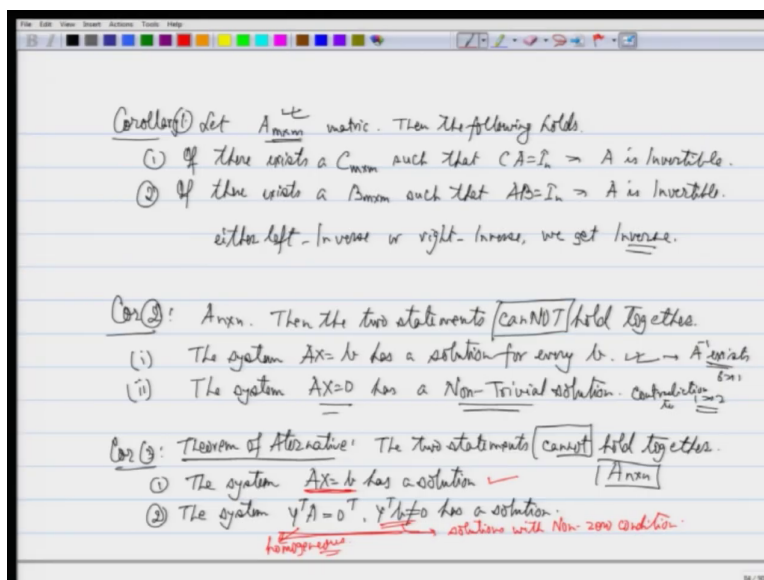 File Edit View Insert Actions Tools Help
B I
Corollary ① Let Anxn matric. Then the following holds.
① If there exists a Cnxn such that CA=In ⇒ A is Invertible.
② If there exists a Bnxn such that AB=In ⇒ A is Invertible.
either left-Inverse or right-Inverse, we get Inverse.
Cor②: Anxn. Then the two statements canNOT hold together.
(i) The system AX=b has a solution for every b. → A⁻¹ exists
(ii) The system AX=0 has a Non-Trivial solution. Contradiction to 1⇒2
Cor③: Theorem of Alternative: The two statements cannot hold together.
① The system AX=b has a solution ✓ Anxn
② The system yᵀA=0ᵀ, yᵀb≠0 has a solution.
homogeneous → solutions with Non-zero condition.